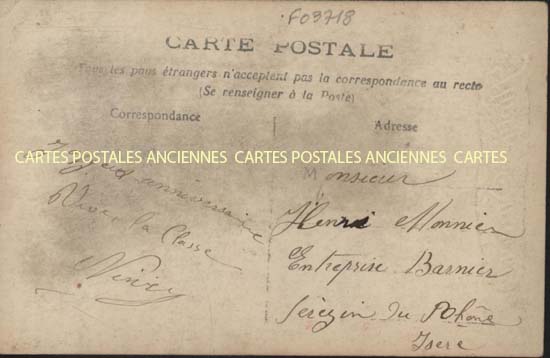 F03718
CARTE POSTALE
Tous les pays étrangers n'acceptent pas la correspondance au recto
(Se renseigner à la Poste)
Correspondance
Adresse
CARTES POSTALES ANCIENNES CARTES POSTALES ANCIENNES CARTES
anniversaire
Vive la Classe
Monsieur
Henri Monnier
Entreprise Barnier
Sérézin du Rhône
Isère